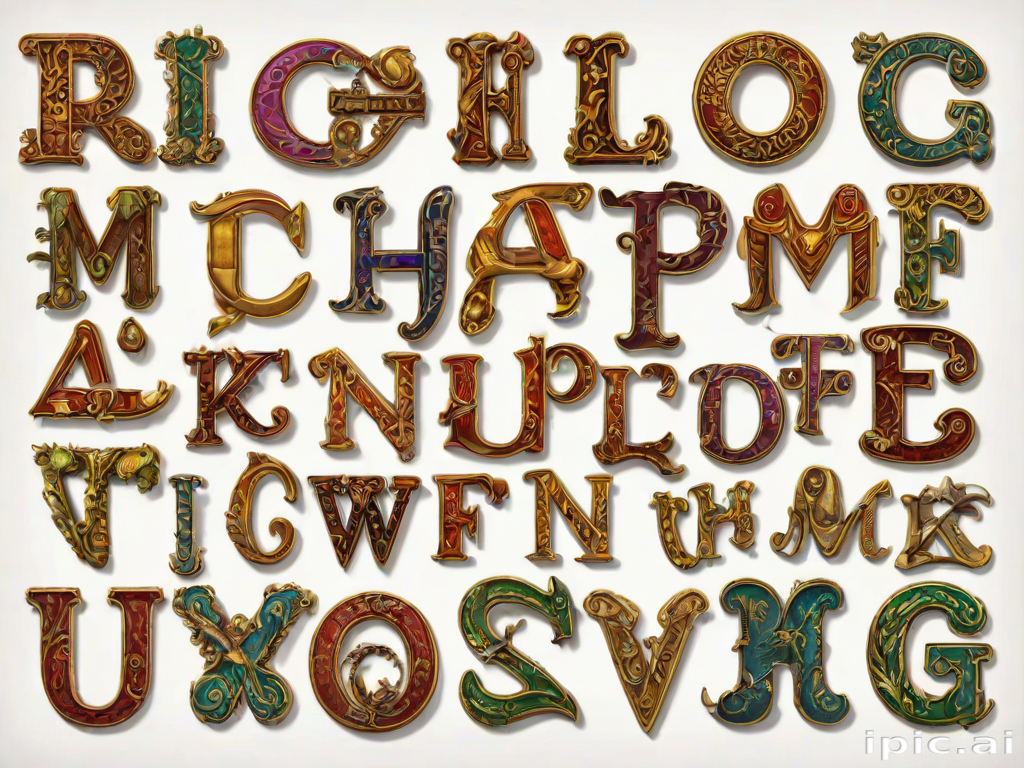 R I G H L O G
M C H A P M F
A K N U P L O F E
V I C W F N U H M K
U X O S V H G
ipic.ai